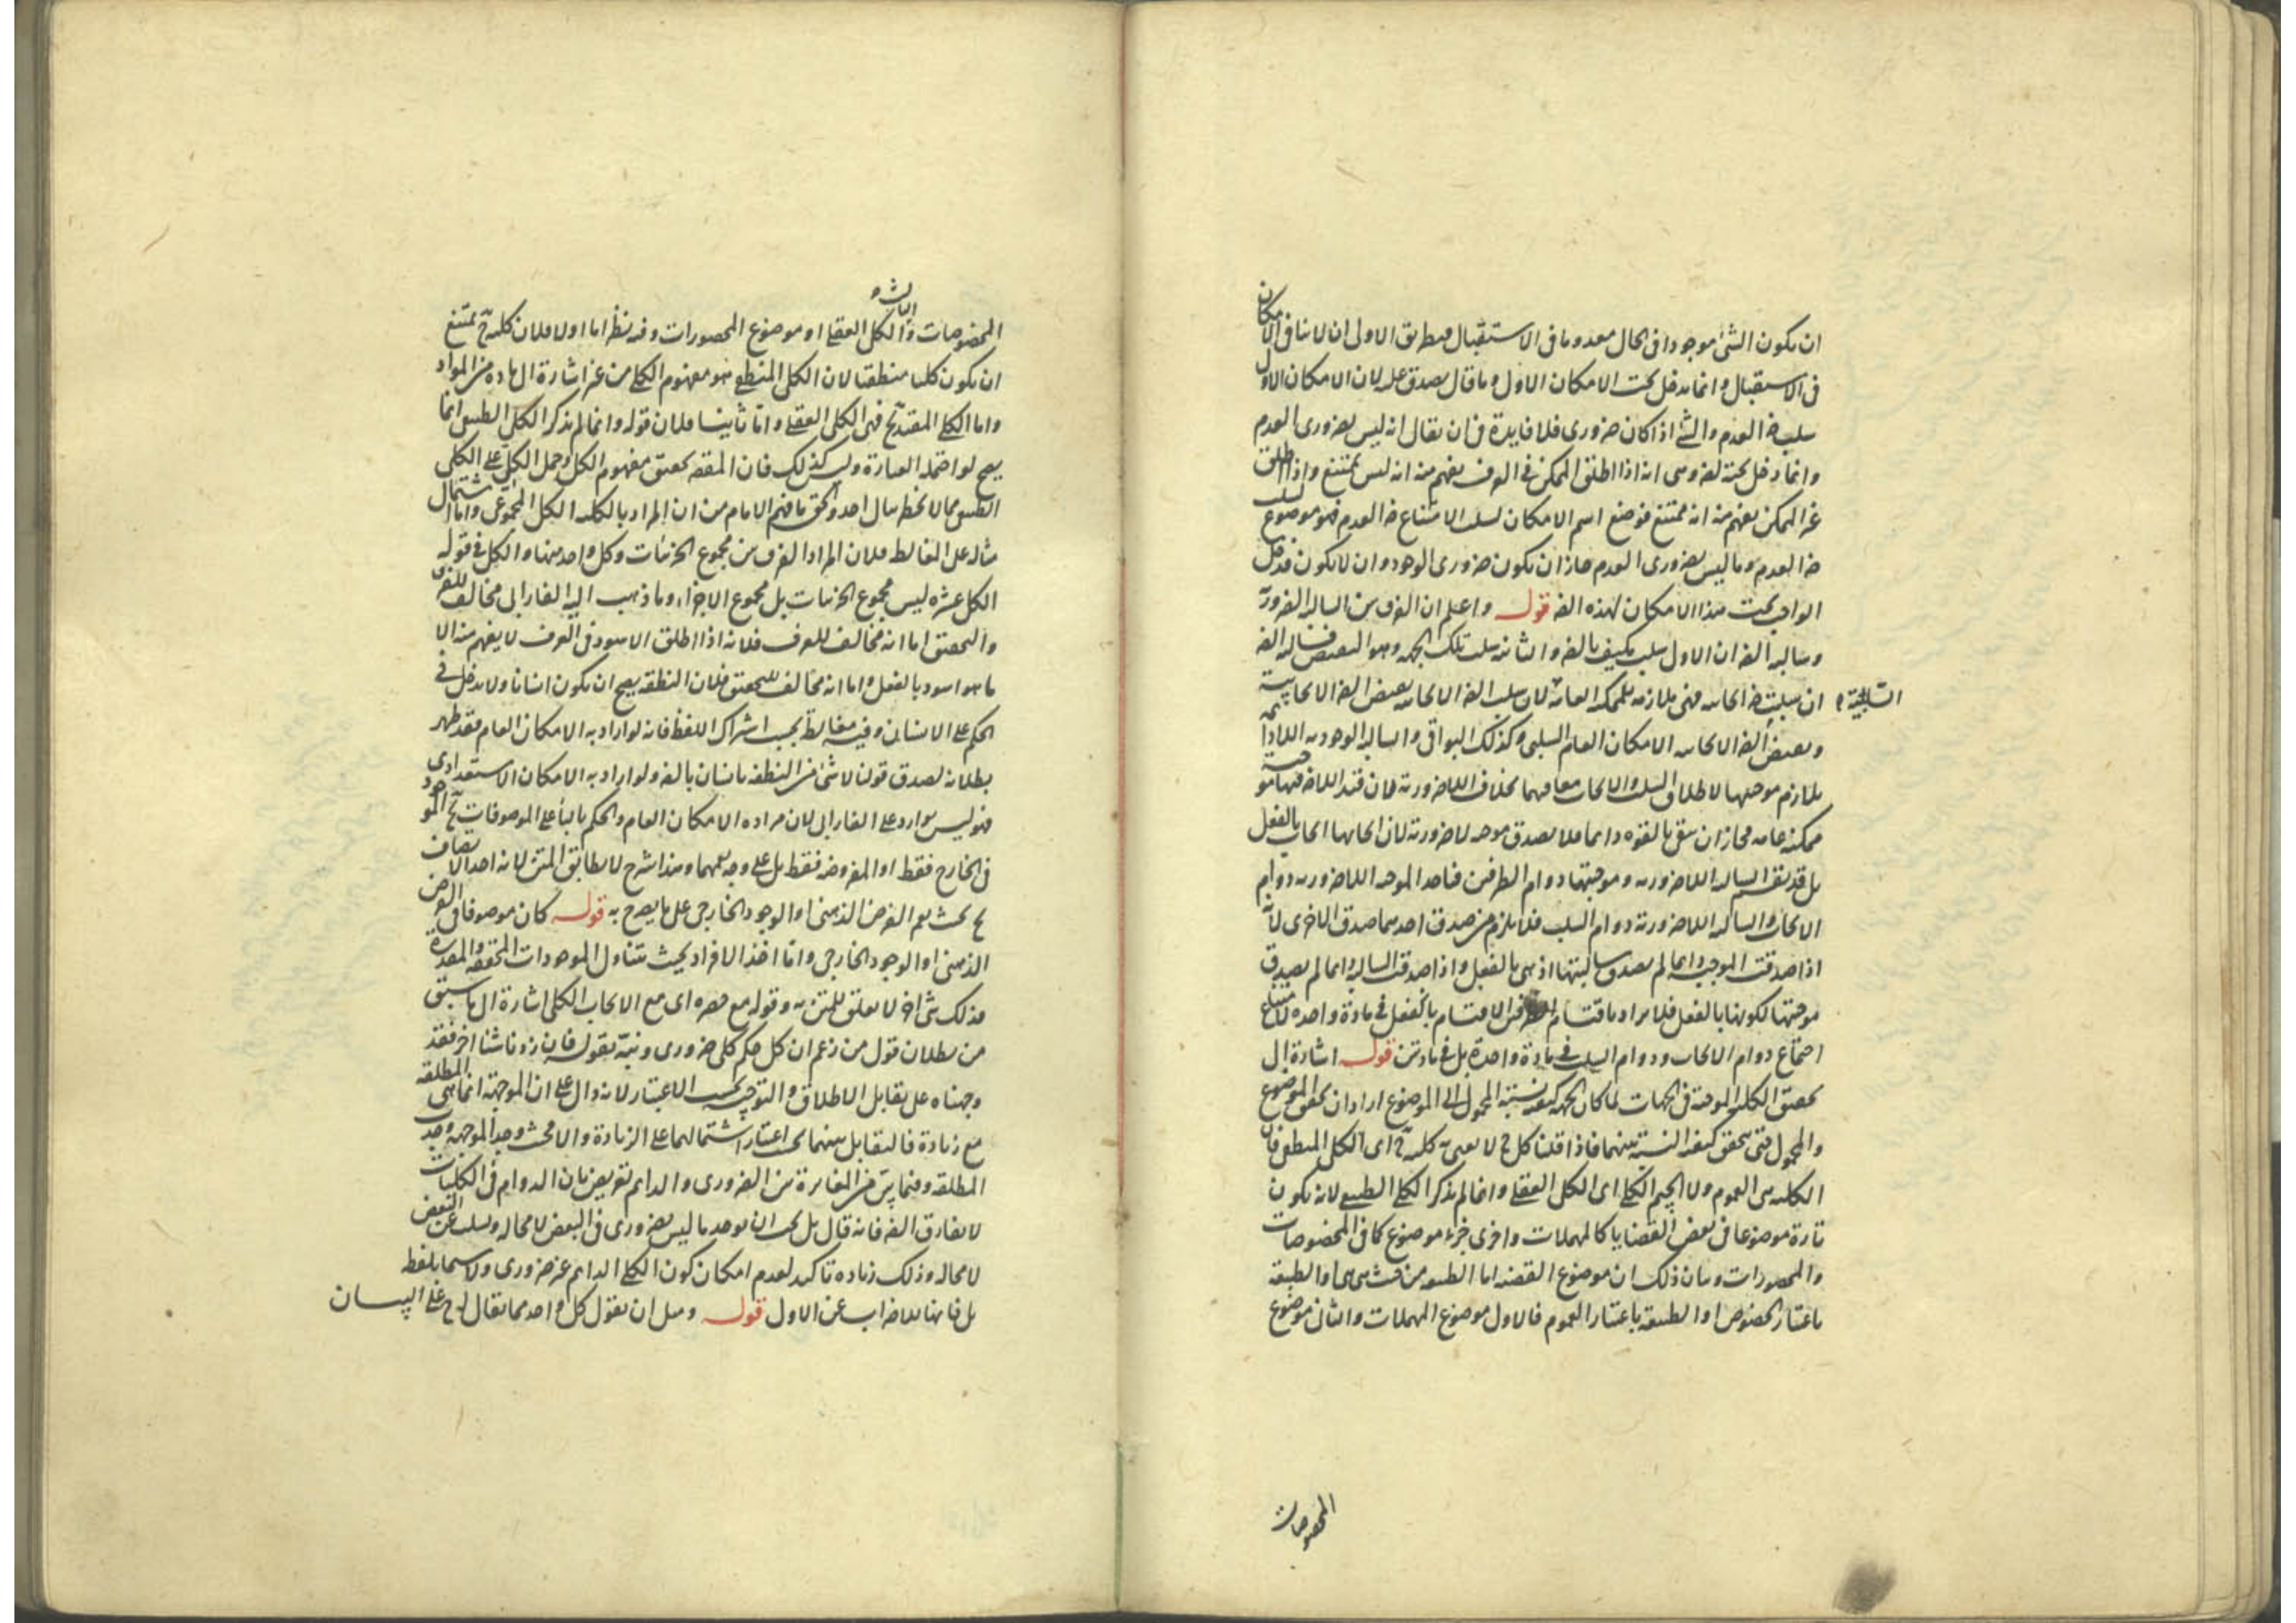 ان يكون الشئ موجودا فى الحال معدوما فى الاستقبال فبطريق الاولى ان لا ينافى الامكان
فى الاستقبال وانما يدخل تحت الامكان الاول وما قال يصدق عليه لان الامكان الاول
سلب ضرالعدم والشئ اذا كان ضرورى فلا فايدة فى ان يقال انه ليس بضرورى العدم
وانما دخل تحته لغة وهى انه اذا اطلق الممكن فى العرف يفهم منه انه ليس بممتنع واذا اطلق
غير الممكن يفهم منه انه ممتنع فوضع اسم الامكان لسلب الامتناع العدم فهو موضوع لسلب
العدم وما ليس بضرورى العدم جاز ان يكون ضرورى الوجود وان لا يكون فدخل
الواجب تحت هذا الامكان لهذه قوله واعلم ان الفرق بين السالبة الضرورة
وسالبة الضر ان الاول سلب مكيف بالضر والثانية سلب تلك الجهة وهو النقيض فسالبة الضر
ان سلبت ايجابيه فهى ملازمة للممكنة العامة لان سلب الضر الايجابيه نقيض الضر الايجابية
السلبية
ونقيض الضر الايجابيه الامكان العام السلبى وكذلك البواقى والسالبة الوجودية اللادائمة
تلازم موجبتها لاطلاق السلب والايجاب معا فيهما بخلاف اللاضرورية فان قيد اللاضر فيها موجبة
ممكنة عامة فجاز ان يبقى بالقوه دائما فلا يصدق موجبه لاضرورية لان ايجابها ايجاب بالفعل
بل قد يقتسم السالبة اللاضرورية وموجبتها دوام الطرفين فتاخذ الموجبة اللاضرورية دوام
الايجاب والسالبة اللاضرورية دوام السلب فلا يلزم من صدق احديهما صدق الاخرى لانه
اذا صدقت الموجبة دائما لم يصدق سالبتها اذ هى بالفعل واذا صدقت السالبة دائما لم يصدق
موجبتها لكونها بالفعل فلا يراد باقتسام الطرفين الاقتسام بالفعل فى مادة واحده لامتناع
اجتماع دوام الايجاب ودوام السلب فى مادة واحدة بل فى مادتين قوله اشارة الى
تحقيق الكلية الموجبة فى الجهات لما كان الجهة كيفية نسبة المحمول الى الموضوع اراد ان يحقق الموضوع
والمحمول حتى يتحقق كيفية النسبة بينهما فاذا قلنا كل ج لا نعنى به كلية ج اى الكلى المنطقى فان
الكلية هى العموم ولا الجيم الكلى اى الكلى العقلى وانما لم يذكر الكلى الطبيعى لانه يكون
تارة موضوعا فى بعض القضايا كالمهملات واخرى جزء موضوع كما فى المخصوصات
والمحصورات وبيان ذلك ان موضوع القضية اما الطبيعة من حيث هى هى او الطبيعة
باعتبار الخصوص او الطبيعة باعتبار العموم فالاول موضوع المهملات والثانى موضوع
المخصوصات
المخصوصات والثالث الكلى العقلى او موضوع المحصورات وفيه نظر اما اولا فلان كلية ج يمتنع
ان يكون كليا منطقيا لان الكلى المنطقى هو مفهوم الكلى من غير اشارة الى مادة من المواد
واما الكلى المقيد بج فهى الكلى العقلى واما ثانيا فلان قوله وانما لم يذكر الكلى الطبيعى انما
يصح لو احتمله العبارة وليس كذلك فان المقصد تحقيق مفهوم الكل وحمل الكل على الكلى
الطبيعى مما لا يخطر ببال احد والحق ما فهم الامام من ان المراد بالكلية الكل المجموعى واما اشتمال
مثاله على الغالط فلان المراد الفرق بين مجموع الجزئيات وكل واحد منها والكل فى قوله
الكل عشره ليس مجموع الجزئيات بل مجموع الاجزاء وما ذهب اليه الفارابى مخالف للعرف
والتحقيق اما انه مخالف للعرف فلانه اذا اطلق الاسود فى العرف لا يفهم منه الا
ما هو اسود بالفعل واما انه مخالف للتحقيق فلان النطفة يصح ان يكون انسانا ولا يدخل فى
الحكم على الانسان وفيه مغالطة بحسب اشتراك اللفظ فانه لو اراد به الامكان العام فقد ظهر
بطلانه لصدق قولنا لا شئ من النطفة بانسان بالضر ولو اراد به الامكان الاستعدادى
فهو ليس بوارد على الفارابى لان مراده الامكان العام والحكم على الموصوفات بج الموجود
فى الخارج فقط او المفروضة فقط بل على وجه يعمهما وهذا شرح لا يطابق المتن لانه اخذ الاتصاف
بج بحيث يعم الفرض الذهنى او الوجود الخارجى على ما يصرح به قوله كان موصوفا فى الفرض
الذهنى او الوجود الخارجى واما اخذ الافراد بحيث يتناول الموجودات المحققة والمقدرة
فذلك شئ اخر لا تعلق للمتن به وقوله مع حصره اى مع الايجاب الكلى اشارة الى ما سبق
من بطلان قول من زعم ان كل حكم كلى ضرورى ونبه بقوله فان زدنا شيئا اخر فقد
وجهناه على تقابل الاطلاق والتوجيه بحسب الاعتبار لانه دال على ان الموجهة انما هى المطلقة
مع زيادة فالتقابل بينهما بحسب اعتبار اشتمالهما على الزيادة والا فحيث وجد الموجهة وجدت
المطلقة وفيما بين من المغايرة بين الضرورى والدائم تعريض بان الدوام فى الكليات
لا يفارق الضر فانه قال بل يجب ان يوجد ما ليس بضرورى فى البعض لا محالة ويسلب عن البعض
لا محاله وذلك زياده تاكيد لعدم امكان كون الكلى الدائم غير ضرورى ولا سيما بلفظ
بل فانها للاضراب عن الاول قوله ومثل ان نقول كل واحد مما يقال له ج على البيان